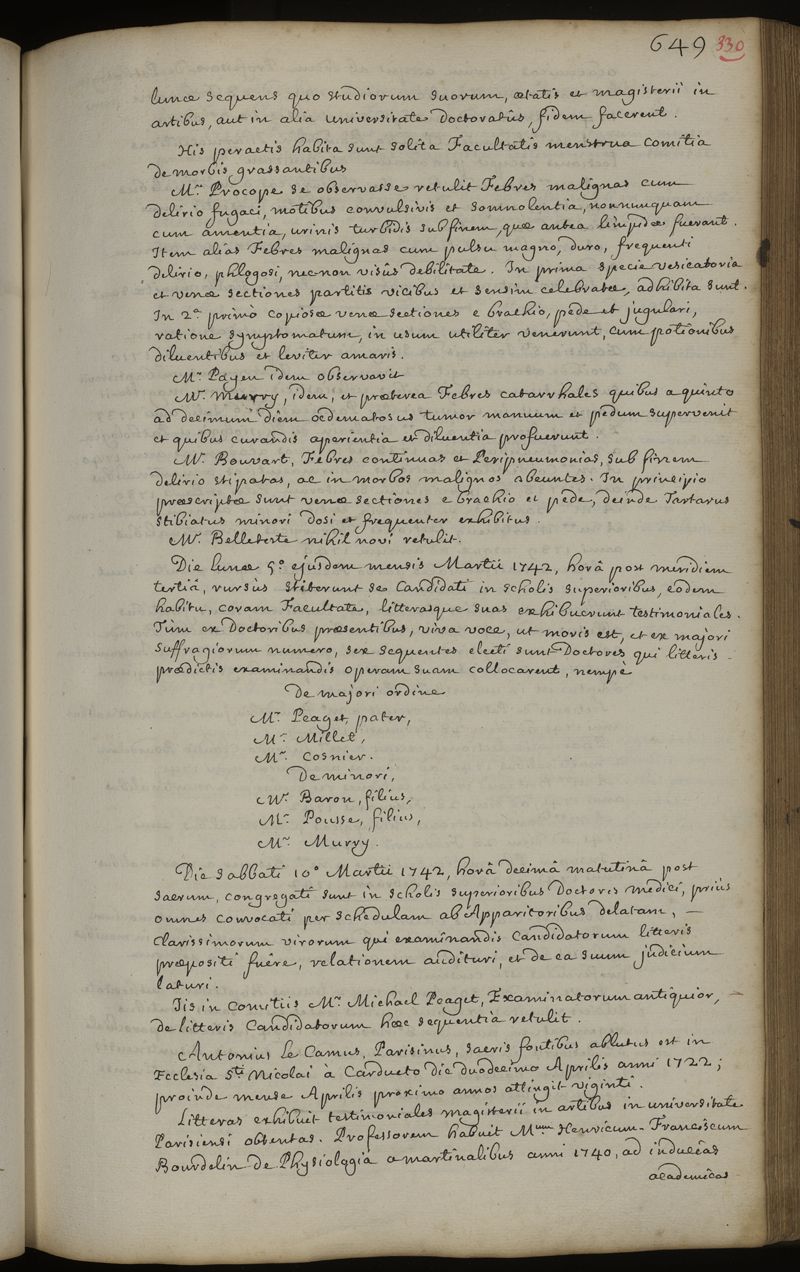 649 330
lunæ sequens quo studiorum suorum, ætatis et magisterii in
artibus, aut in alia universitate Doctoratûs, fidem facerent.
His peractis habita sunt solita Facultatis menstrua Comitia
de morbis grassantibus
Mr. Procope se observasse retulit Febres malignas cum
delirio fugaci, motibus convulsivis et somnolentia, nonnunquam
cum amentia, urinis turbidis sub finem, quæ antea limpidæ fuerant.
Item alias Febres malignas cum pulsu magno, duro, frequenti
delirio, phlogosi, necnon visûs debilitate. In prima specie vesicatoria
et venæ sectiones partitis vicibus et sensim celebratæ, adhibita sunt.
In 2a. primo copiosæ venæ sectiones e brachio, pede et jugulari,
ratione symptomatum, in usum utiliter venerunt, cum potionibus
diluentibus et leviter amaris.
Mr. Payen idem observavit
Mr. Murry, idem, et præterea Febres catarrhales quibus a quinto
ad decimum diem œdematosus tumor manuum et pedum supervenit
et quibus curandis aperientia et diluentia profuerunt.
Mr. Bouvart, Febres continuas et Peripneumonias, sub finem
delirio stipatas, ac in morbos malignos abeuntes. In principio
præscriptæ sunt venæ sectiones e brachio et pede, deinde Tartarus
stibiatus minori dosi et frequenter exhibitus.
Mr. Belletete nihil novi retulit.
Die lunæ 5o. ejusdem mensis Martii 1742, horâ post meridiem
tertiâ, rursùs stiterunt se Candidati in scholis superioribus, eodem
habitu, coram Facultate, litterasque suas exhibuerunt testimoniales.
Tum ex Doctoribus præsentibus, viva voce, ut moris est, et ex majori
suffragiorum numero, sex sequentes electi sunt Doctores qui litteris
prædictis examinandis operam suam collocarent, nempè
De majori ordine
Mr. Peaget, pater,
Mr. Millet,
Mr. Cosnier.
De minori,
Mr. Baron, filius,
Mr. Pousse, filius,
Mr. Murry.
Die sabbati 10o Martii 1742, horâ decimâ matutinâ post
sacrum, congregati sunt in scholis superioribus Doctores medici, priùs
omnes convocati per schedulam ab Apparitoribus delatam, —
Clarissimorum virorum qui examinandis Candidatorum litteris
præpositi fuêre, relationem audituri, et de ea suum judicium
laturi.
Iis in Comitiis Mr. Michael Peaget, Examinatorum antiquior, —
de litteris Candidatorum hæc sequentia retulit.
Antonius Le Camus, Parisinus, sacris fontibus ablutus est in
Ecclesia Sti. Nicolai à Cardueto die duodecimo Aprilis anni 1722;
proinde mense Aprilis proximo annos attingit viginti.
Litteras exhibuit testimoniales magisterii in artibus in universitate
Parisiensi obtentas. Professorem habuit Mum Henricum-Franciscum
Bourdelin de Physiologia a martinalibus anni 1740, ad inducias
academicas